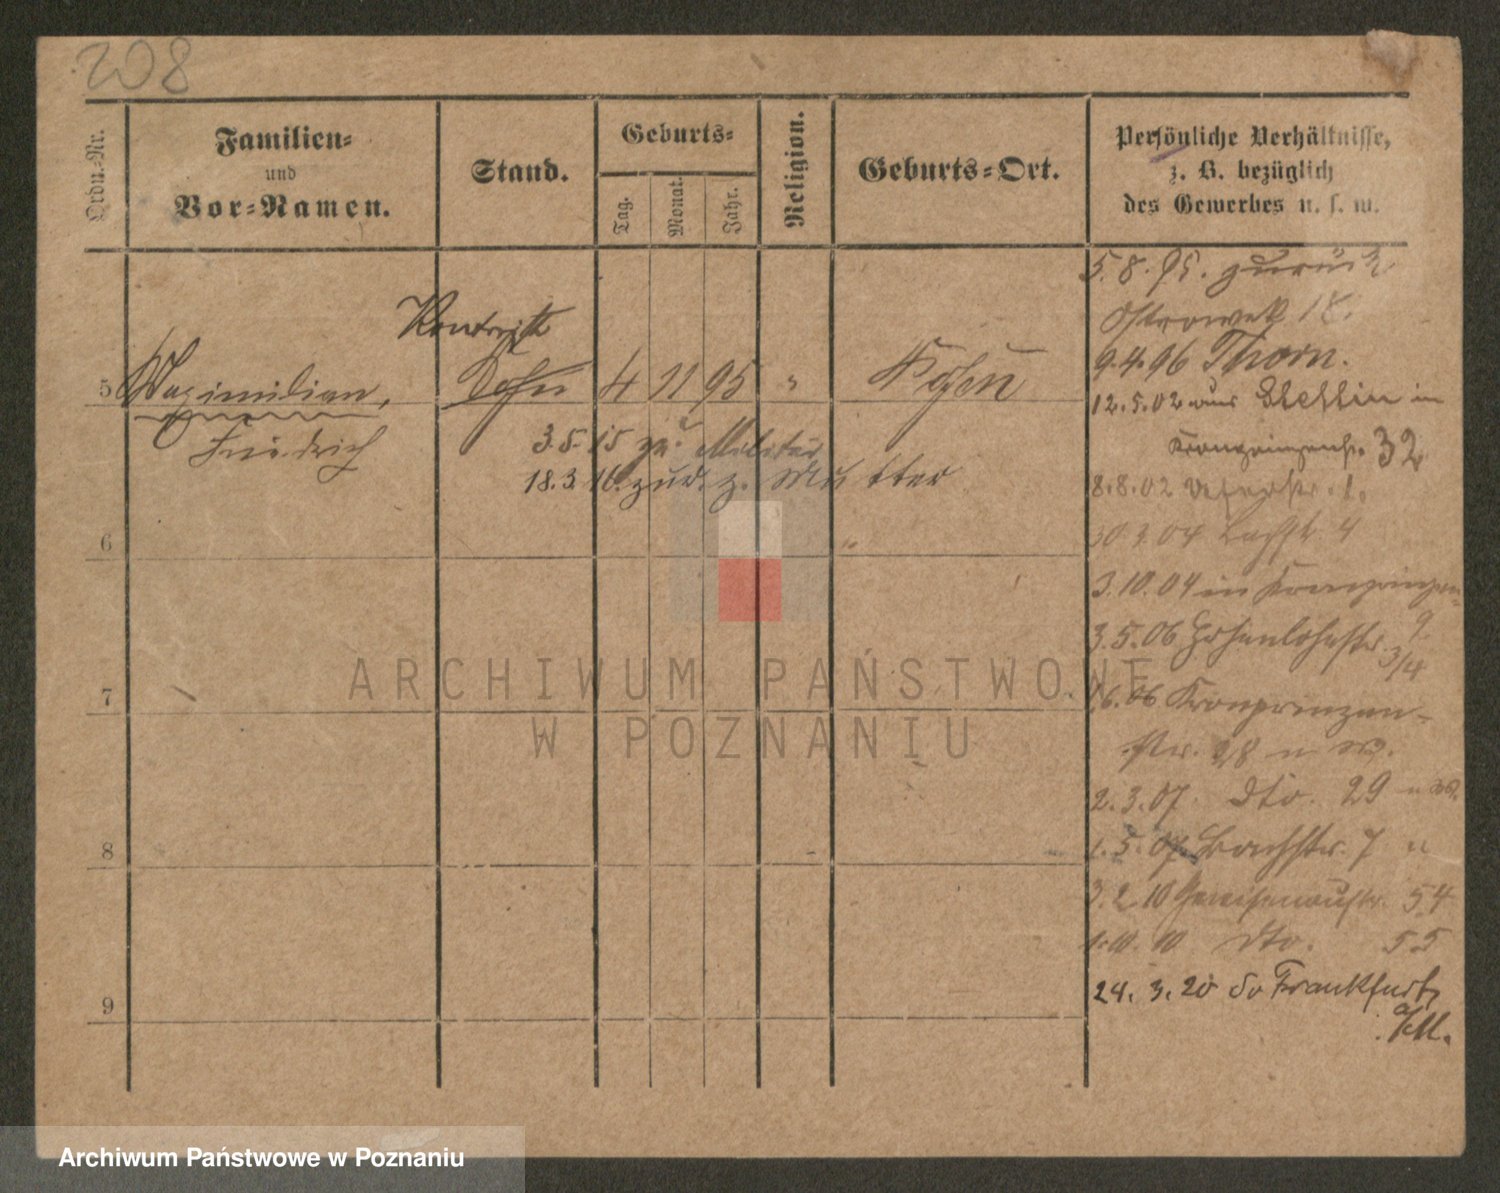 208
Ordn.-Nr.
Familien-
und
Vor-Namen.
Stand.
Geburts-
Tag.
Monat.
Jahr.
Religion.
Geburts-Ort.
Persönliche Verhältnisse,
z. B. bezüglich
des Gewerbes u. s. w.
5.8.95. zurück
18.
9.4.96 Thorn.
12.5.02 aus Stettin in
Kronprinzenstr. 32
8.8.02 1.
04 4
3.10.04 in Kronprinzen-
9.
3.5.06 Hohenlohestr. 3/4
6.06 Kronprinzen-
str. 28
2.3.07. dto. 29
1.5.07. Bachstr. 7
3.2.10 Gneisenaustr. 54
1.10.10 dto. 55
24.3.20 Frankfurt
a/M.
5 Maximilian, Sohn 4 11 95 " Posen
Friedrich
3.5.15 zu Militär
18.3.16. zur. z. Mutter
6
7
8
9
ARCHIWUM PAŃSTWOWE
W POZNANIU
Archiwum Państwowe w Poznaniu